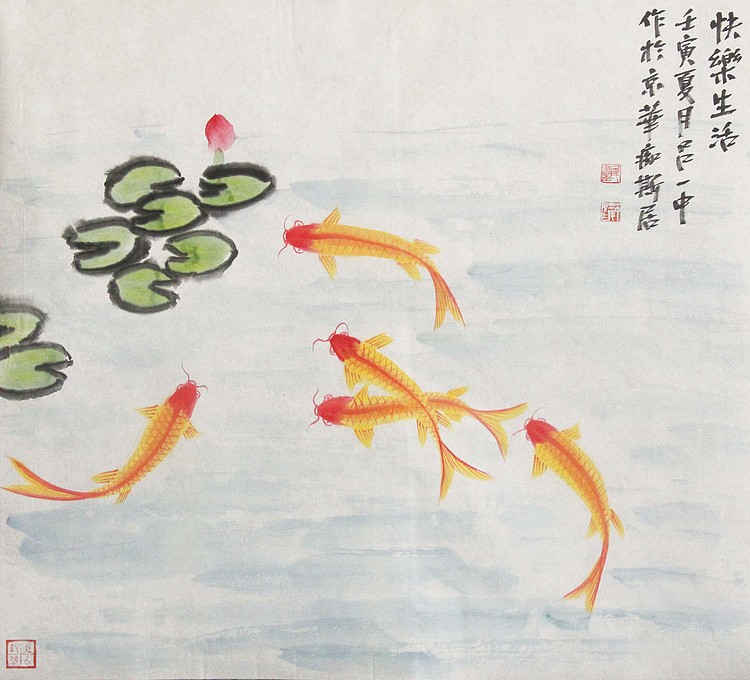 快樂生活
壬寅夏月吕一中
作於京華痴斯居